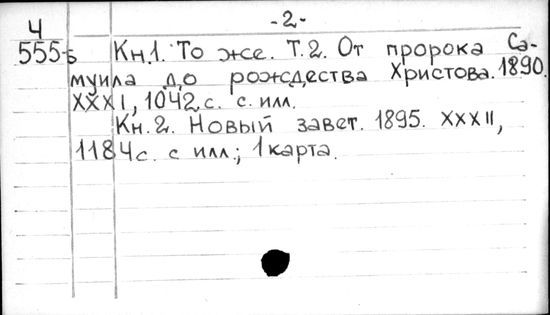 Ч
-2-
555-б Кн.1. То же. Т.2. От пророка Са-
муила до рождества Христова. 1890.
XXXI, 1042 с. с илл.
Кн.2. Новый завет. 1895. XXXII,
1184 с. с илл.; 1 карта.